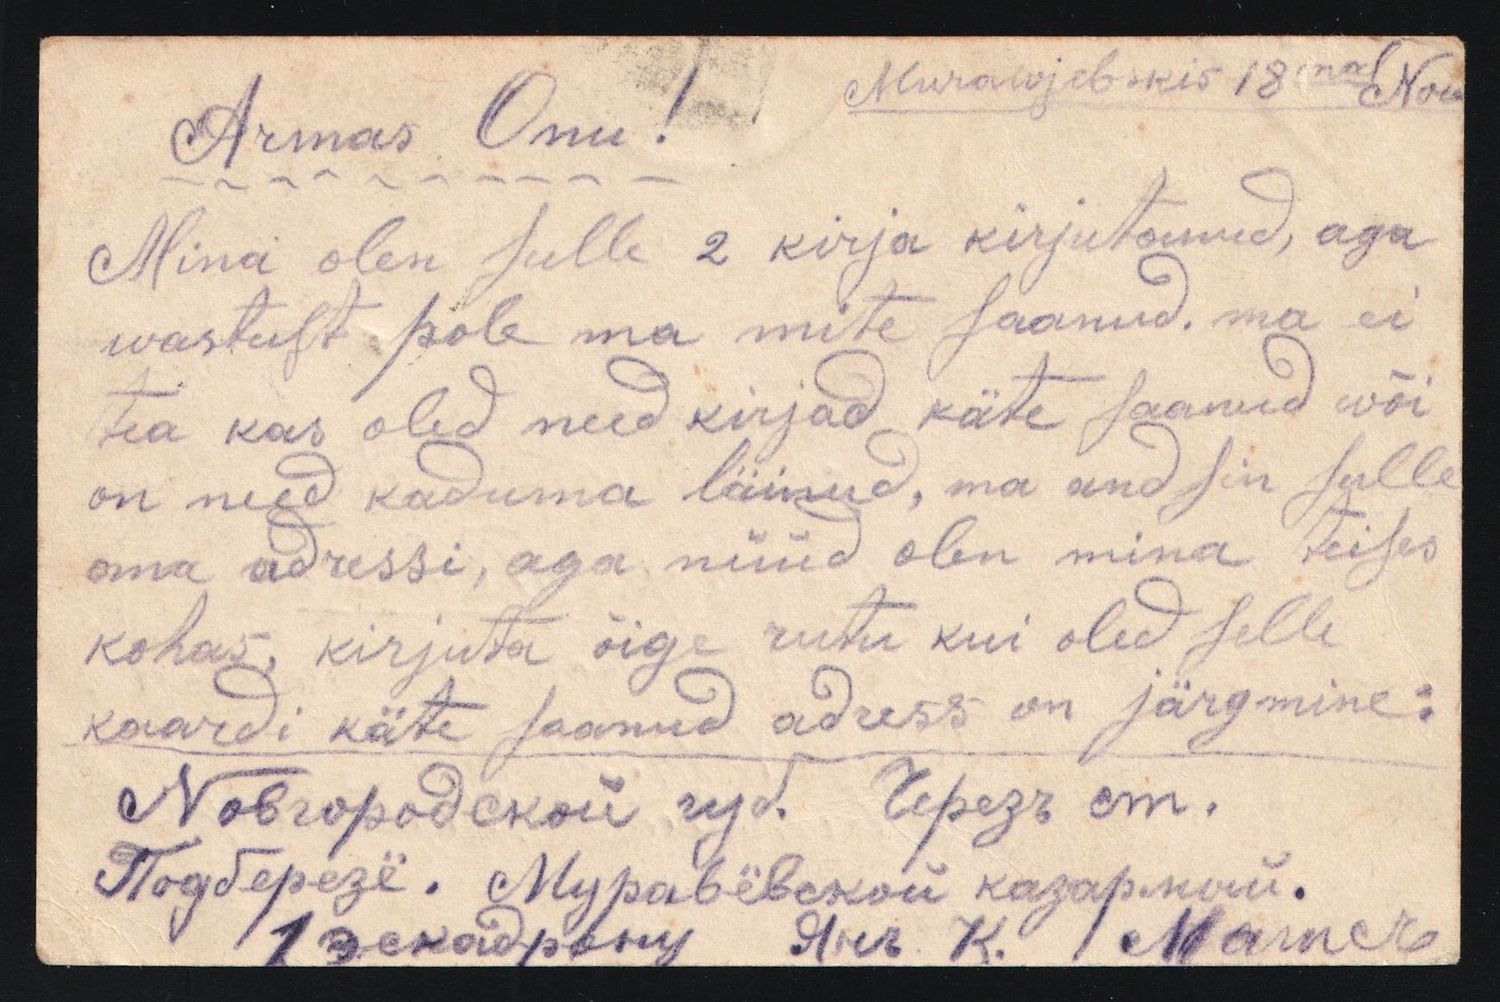 Murawjewskis 18mal Now
Armas Onu!
Mina olen sulle 2 kirja kirjutanud, aga
wastust pole ma mite saanud. ma ei
tea kas oled need kirjad käte saanud wõi
on need kaduma läinud, ma and sin sulle
oma adressi, aga nüüd olen mina teises
kohas, kirjuta õige rutu kui oled selle
kaardi käte saanud adress on järgmine:
Новгородской губ. Черезъ ст.
Подберезё. Муравёвской казармый.
1 эскадрону Янъ К.